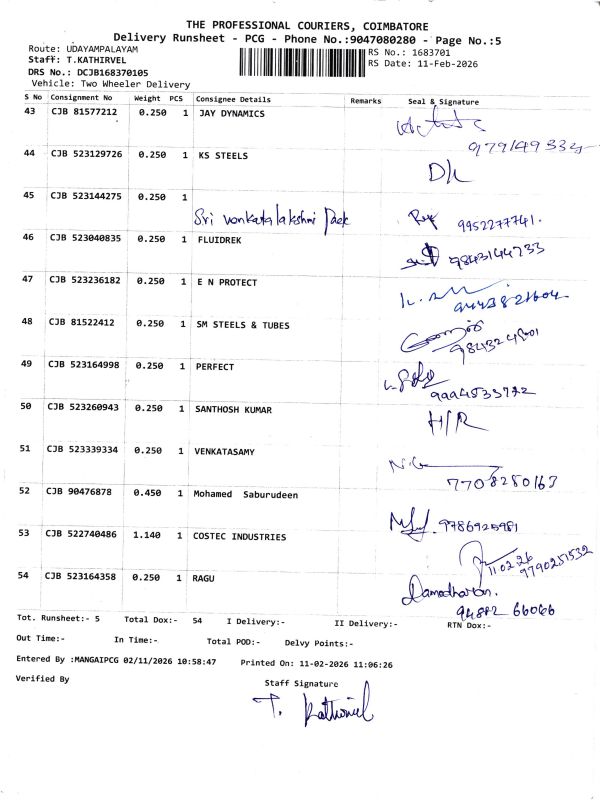 THE PROFESSIONAL COURIERS, COIMBATORE
Delivery Runsheet - PCG - Phone No.:9047080280 - Page No.:5
Route: UDAYAMPALAYAM
RS No.: 1683701
Staff: T.KATHIRVEL
RS Date: 11-Feb-2026
DRS No.: DCJB168370105
Vehicle: Two Wheeler Delivery
S No Consignment No Weight PCS Consignee Details Remarks Seal & Signature
43 CJB 81577212 0.250 1 JAY DYNAMICS
44 CJB 523129726 0.250 1 KS STEELS
D/L
45 CJB 523144275 0.250 1
Sri venkatalakshmi Pack 9952277741.
46 CJB 523040835 0.250 1 FLUIDREK
9843144733
47 CJB 523236182 0.250 1 E N PROTECT
9443821604
48 CJB 81522412 0.250 1 SM STEELS & TUBES
49 CJB 523164998 0.250 1 PERFECT
50 CJB 523260943 0.250 1 SANTHOSH KUMAR
H/R
51 CJB 523339334 0.250 1 VENKATASAMY
7708280163
52 CJB 90476878 0.450 1 Mohamed Saburudeen
9786925981
53 CJB 522740486 1.140 1 COSTEC INDUSTRIES
11.02.26
9790251532
54 CJB 523164358 0.250 1 RAGU
Damodharan.
94882 66066
Tot. Runsheet:- 5 Total Dox:- 54 I Delivery:- II Delivery:- RTN Dox:-
Out Time:- In Time:- Total POD:- Delvy Points:-
Entered By :MANGAIPCG 02/11/2026 10:58:47 Printed On: 11-02-2026 11:06:26
Verified By Staff Signature
T. Kathirvel